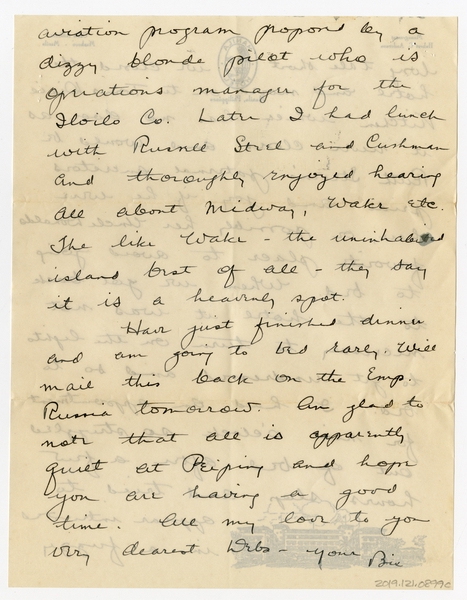 aviation program proposed by a
dizzy blonde pilot who is
operations manager for the
Iloilo Co. Later I had lunch
with Russell Steel and Cushman
and thoroughly enjoyed hearing
all about Midway, Wake etc.
The like Wake - the uninhabited
island best of all - they say
it is a heavenly spot.
Have just finished dinner
and am going to bed early. Will
mail this back on the Emp.
Russia tomorrow. Am glad to
note that all is apparently
quiet at Peiping and hope
you are having a good
time. All my love to you
very dearest Debs - your Bix
2019.121.0899c